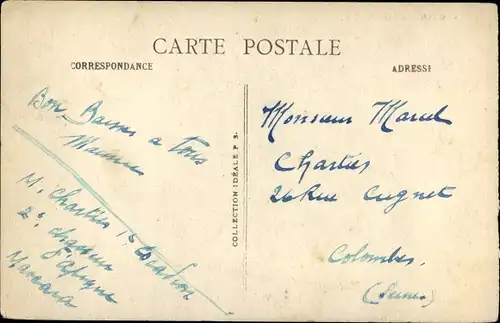 CARTE POSTALE
CORRESPONDANCE
ADRESSE
Bons Baisers a tous
Maurice
M. Chartier 1er Escadron
2e chasseur
d'Afrique
Mascara
COLLECTION IDÉALE P. S.
Monsieur Marcel
Chartier
26 Rue Cugnet
Colombes
(Seine)